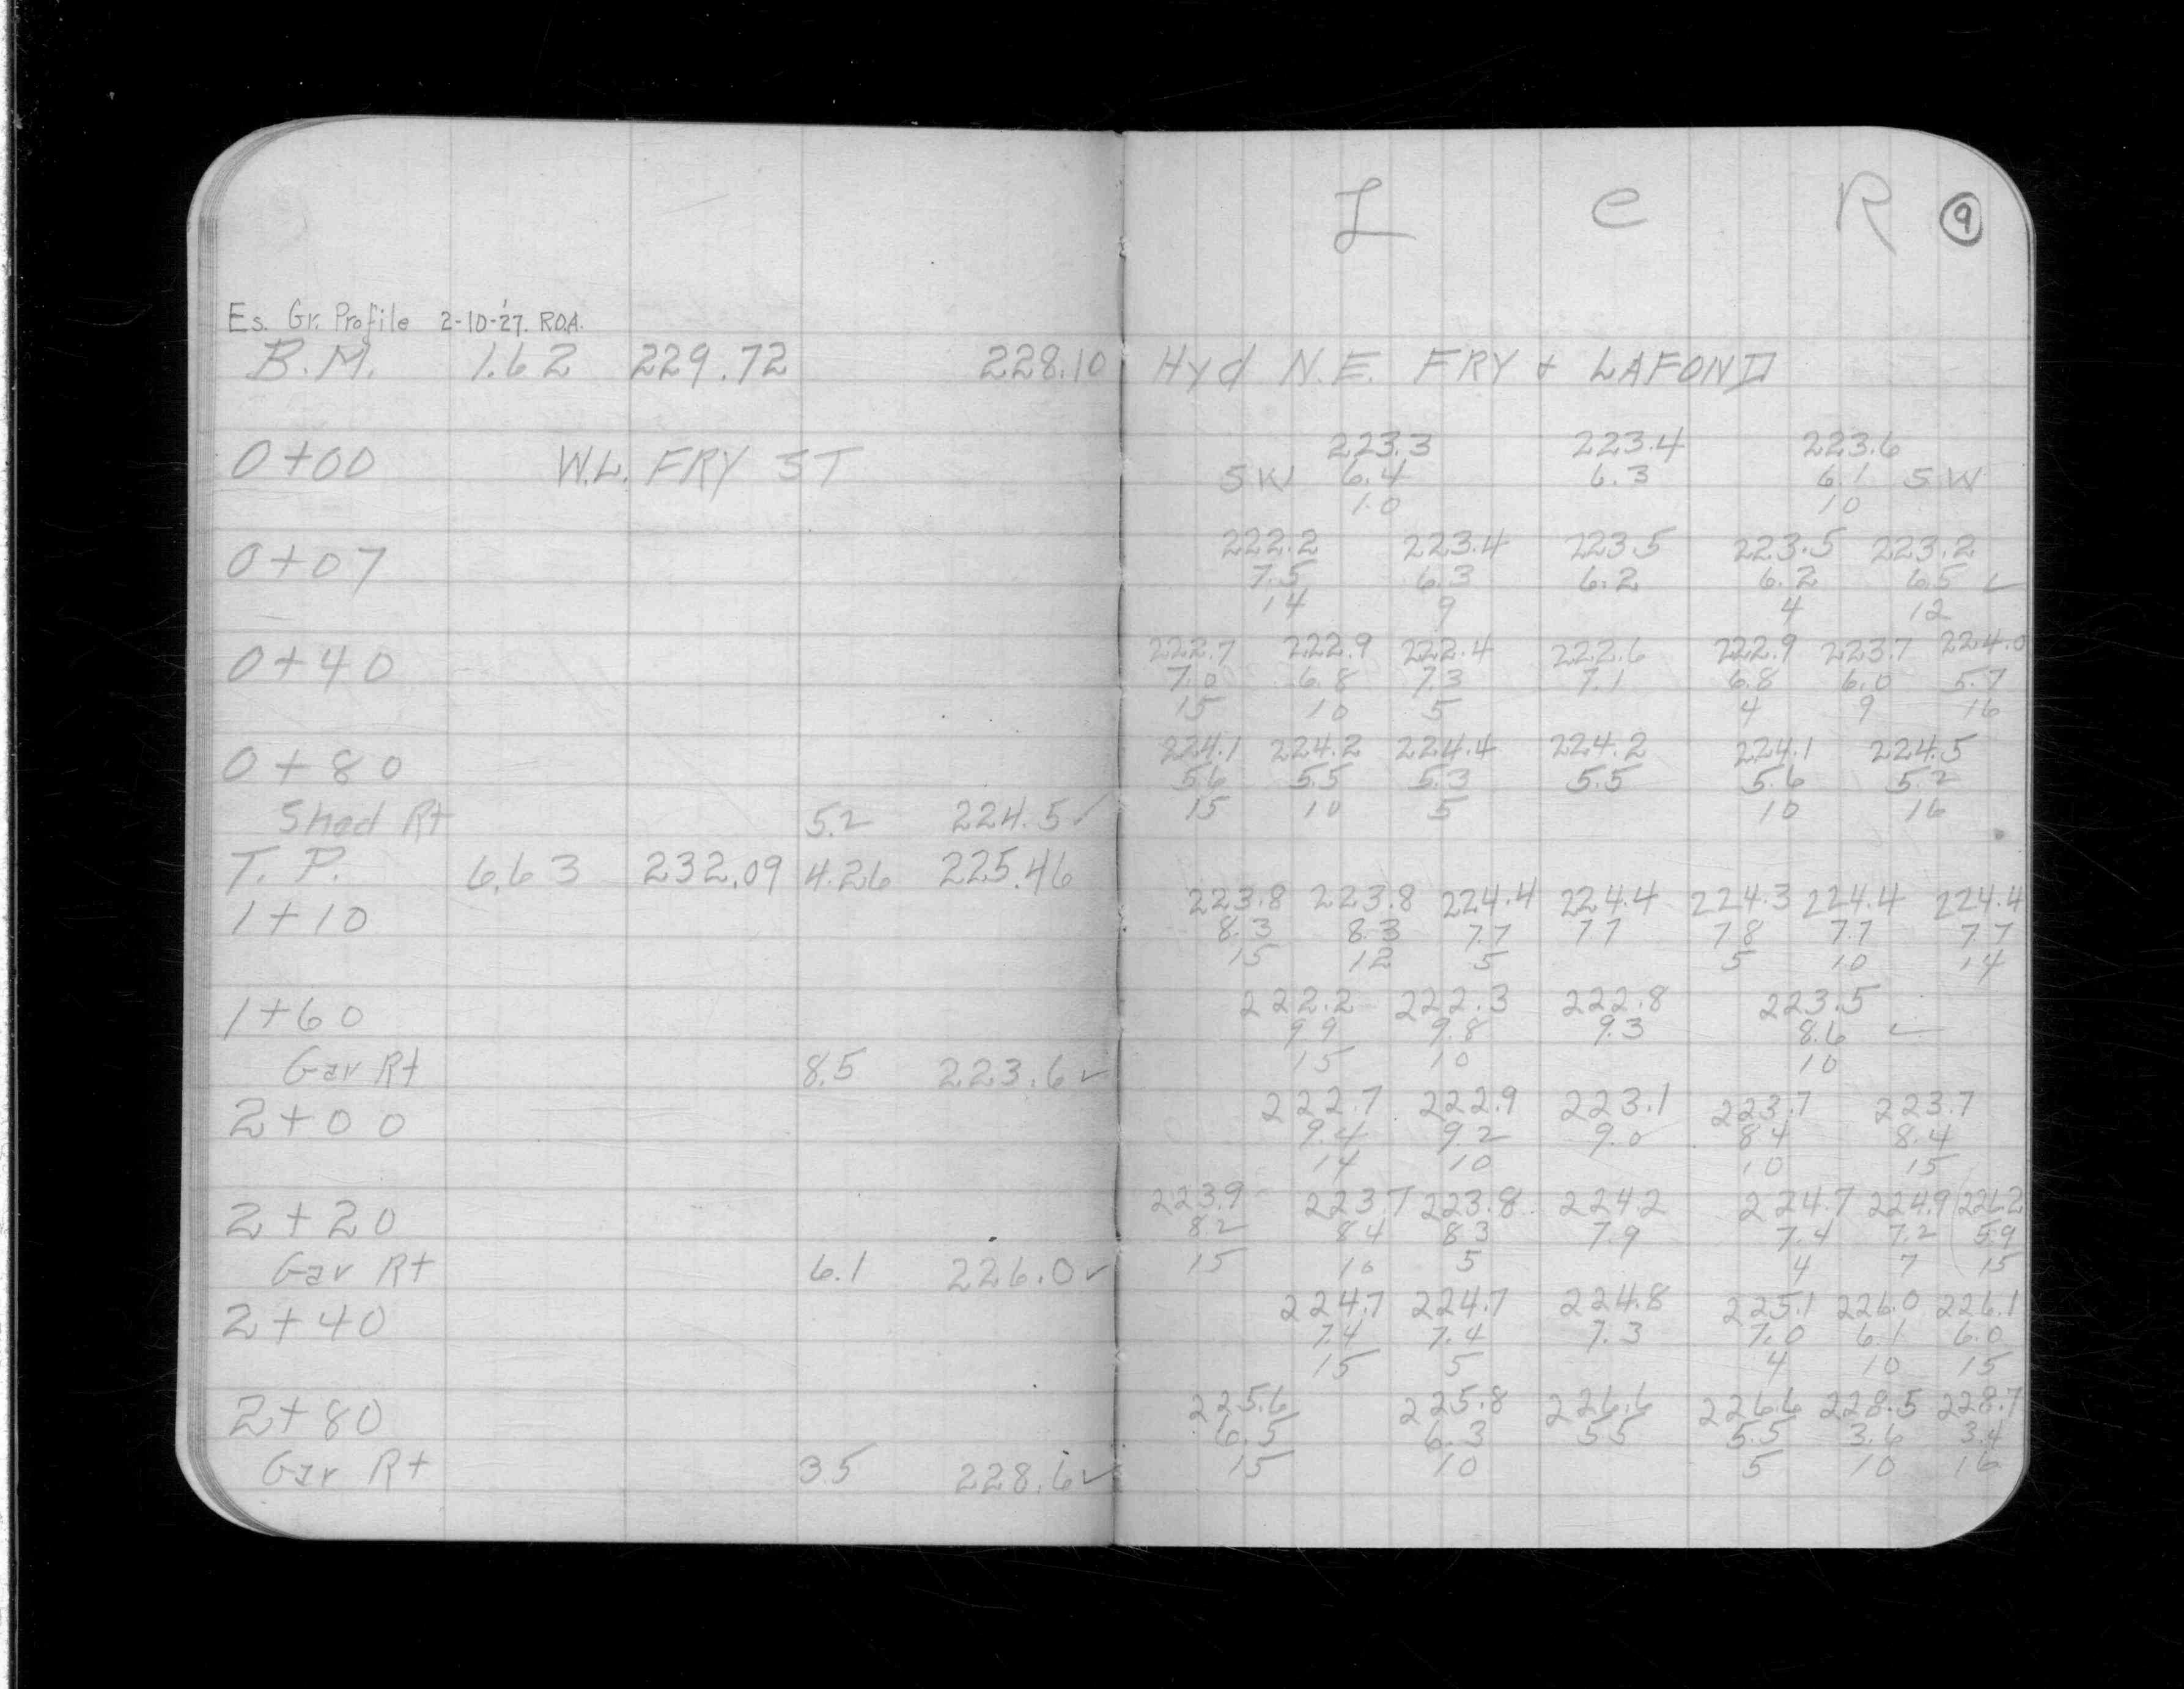 L C R 9
Es. Gr. Profile 2-10-'27. ROA.
B.M. 1.62 229.72 228.10 Hyd N.E. FRY + LAFOND
223.3 223.4 223.6
0+00 W.L. FRY ST SW 6.4 6.3 6.1 SW
10 10
222.2 223.4 223.5 223.5 223.2
0+07 7.5 6.3 6.2 6.2 6.5 ✓
14 9 4 12
222.7 222.9 222.4 222.6 222.9 223.7 224.0
0+40 7.0 6.8 7.3 7.1 6.8 6.0 5.7
15 10 5 4 9 16
224.1 224.2 224.4 224.2 224.1 224.5
0+80 5.6 5.5 5.3 5.5 5.6 5.2
Shed Rt 5.2 224.5 ✓ 15 10 5 10 16
T.P. 6.63 232.09 4.26 225.46
223.8 223.8 224.4 224.4 224.3 224.4 224.4
1+10 8.3 8.3 7.7 7.7 7.8 7.7 7.7
15 12 5 5 10 14
222.2 222.3 222.8 223.5
1+60 9.9 9.8 9.3 8.6 ✓
Gar Rt 8.5 223.6 ✓ 15 10 10
222.7 222.9 223.1 223.7 223.7
2+00 9.4 9.2 9.0 8.4 8.4
14 10 10 15
223.9 223.7 223.8 224.2 224.7 224.9 (226.2
2+20 8.2 8.4 8.3 7.9 7.4 7.2 5.9
Gar Rt 6.1 226.0 ✓ 15 10 5 4 7 15
224.7 224.7 224.8 225.1 226.0 226.1
2+40 7.4 7.4 7.3 7.0 6.1 6.0
15 5 4 10 15
225.6 225.8 226.6 226.6 228.5 228.7
2+80 6.5 6.3 5.5 5.5 3.6 3.4
Gar Rt 3.5 228.6 ✓ 15 10 5 10 16